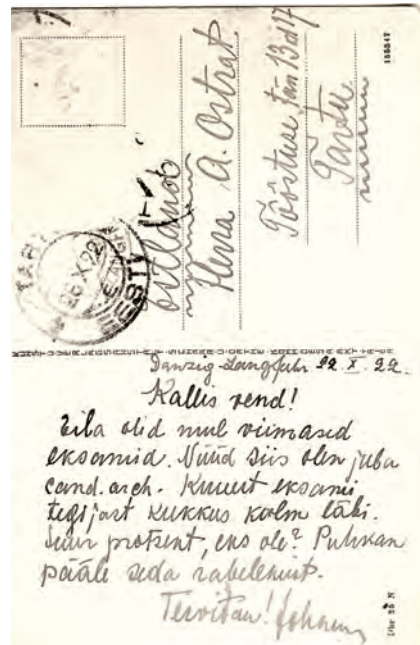 155547
Estland
Herra A. Ostrat
Tööstuse tän 13 a 17
Tartu
TARTU
26 X 22
EESTI
Danzig-Langfuhr 22. X. 22.
Kallis vend!
Eila olid mul viimased
eksamid. Nüüd siis olen juba
cand. arch. Kuuest eksami
tegijast kukkus kolm läbi.
Suur protsent, eks ole? Puhkan
pääle seda rabelemist.
Tervitan! Johann
Dbr 25 N